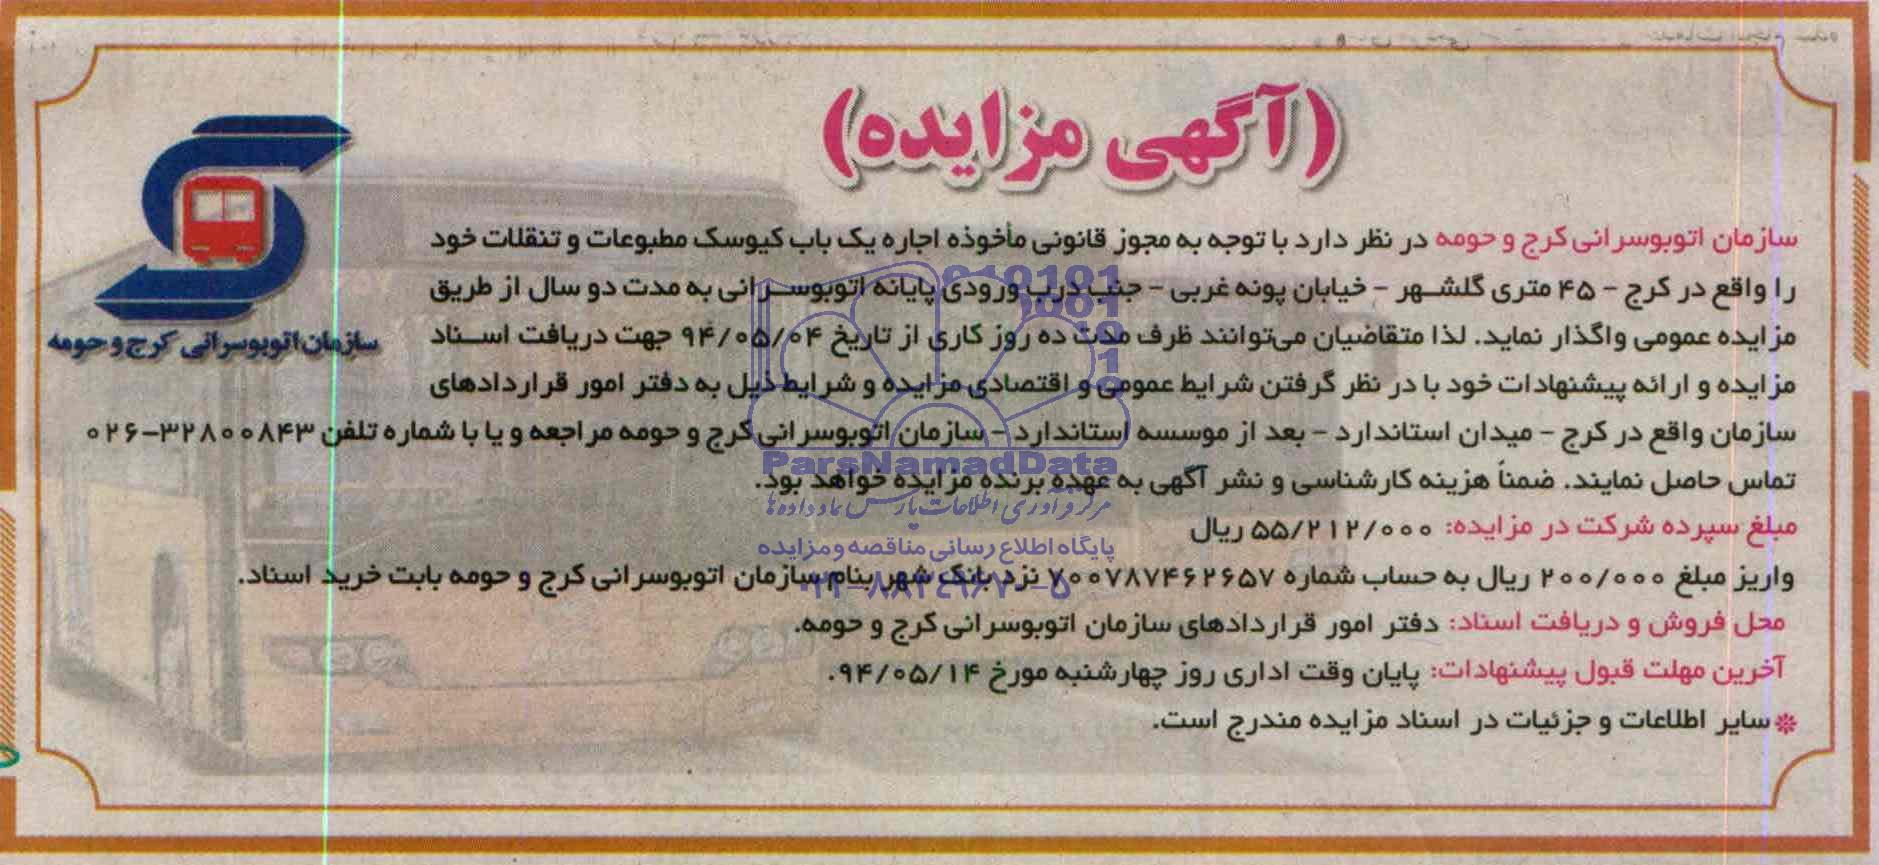 (آگهی مزایده)
سازمان اتوبوسرانی کرج و حومه در نظر دارد با توجه به مجوز قانونی مأخوذه اجاره یک باب کیوسک مطبوعات و تنقلات خود
را واقع در کرج - ۴۵ متری گلشهر - خیابان پونه غربی - جنب درب ورودی پایانه اتوبوسرانی به مدت دو سال از طریق
مزایده عمومی واگذار نماید. لذا متقاضیان می‌توانند ظرف مدت ده روز کاری از تاریخ ۹۴/۰۵/۰۴ جهت دریافت اسناد
مزایده و ارائه پیشنهادات خود با در نظر گرفتن شرایط عمومی و اقتصادی مزایده و شرایط ذیل به دفتر امور قراردادهای
سازمان واقع در کرج - میدان استاندارد - بعد از موسسه استاندارد - سازمان اتوبوسرانی کرج و حومه مراجعه و یا با شماره تلفن ۳۲۸۰۰۸۴۳-۰۲۶
تماس حاصل نمایند. ضمناً هزینه کارشناسی و نشر آگهی به عهده برنده مزایده خواهد بود.
مبلغ سپرده شرکت در مزایده: ۵۵/۲۱۲/۰۰۰ ریال
واریز مبلغ ۲۰۰/۰۰۰ ریال به حساب شماره ۷۰۰۷۸۷۴۶۲۶۵۷ نزد بانک شهر بنام سازمان اتوبوسرانی کرج و حومه بابت خرید اسناد.
محل فروش و دریافت اسناد: دفتر امور قراردادهای سازمان اتوبوسرانی کرج و حومه.
آخرین مهلت قبول پیشنهادات: پایان وقت اداری روز چهارشنبه مورخ ۹۴/۰۵/۱۴.
* سایر اطلاعات و جزئیات در اسناد مزایده مندرج است.
سازمان اتوبوسرانی کرج و حومه
ParsNamadData
مرکز فرآوری اطلاعات پارس نماد داده ها
پایگاه اطلاع رسانی مناقصه و مزایده